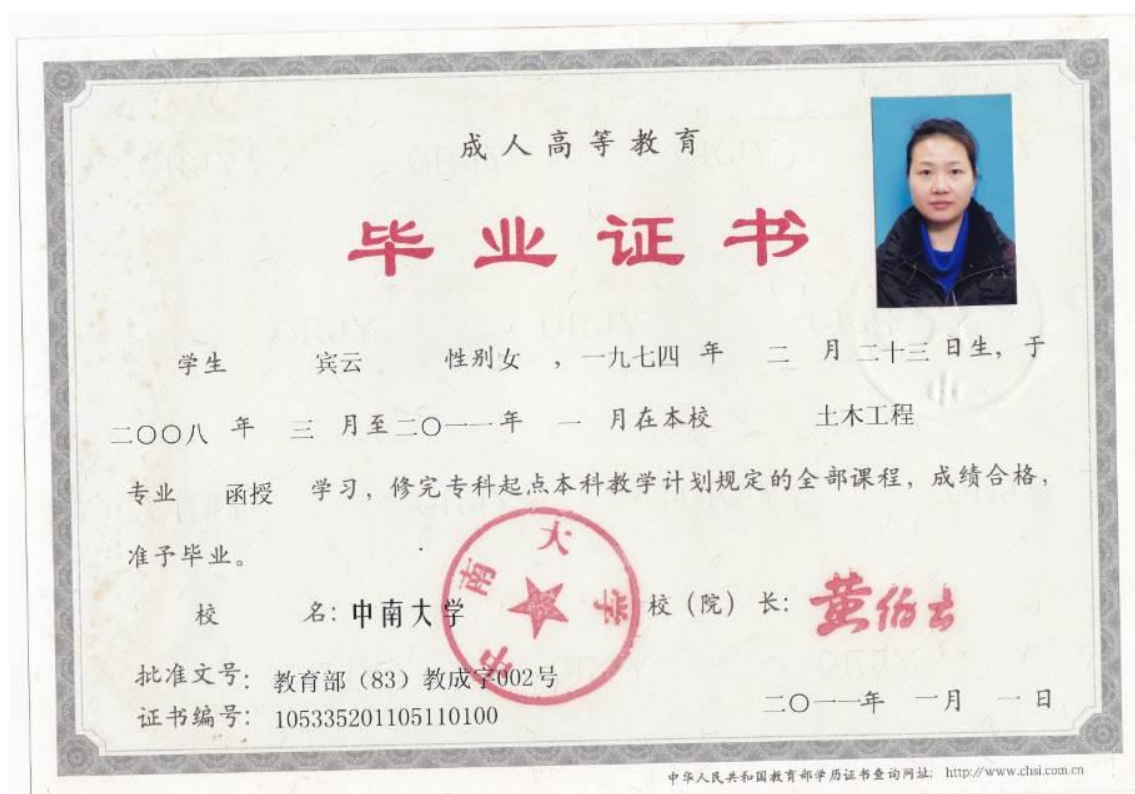 成人高等教育
毕业证书
学生 宾云 性别女 , 一九七四 年 二 月 二十三 日生, 于
二〇〇八 年 三 月至二〇一一年 一 月在本校 土木工程
专业 函授 学习, 修完专科起点本科教学计划规定的全部课程, 成绩合格,
准予毕业。
校 名: 中南大学 校(院)长: 黄伯云
中南大学
批准文号: 教育部(83)教成字002号
证书编号: 105335201105110100
二〇一一年 一月 一日
中华人民共和国教育部学历证书查询网址: http://www.chsi.com.cn